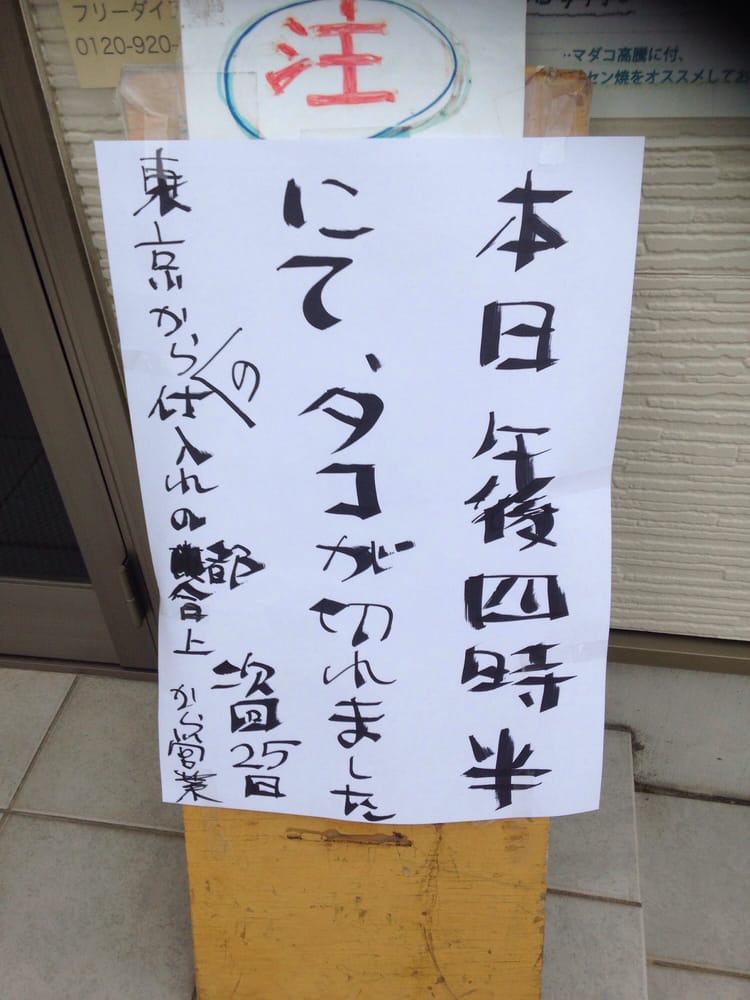 フリーダイ
0120-920-
注
‥マダコ高騰に付、
セン焼をオススメしてお
本日午後四時半
にて、タコが切れました
東京からの仕入れの都合上
次回25日
から営業